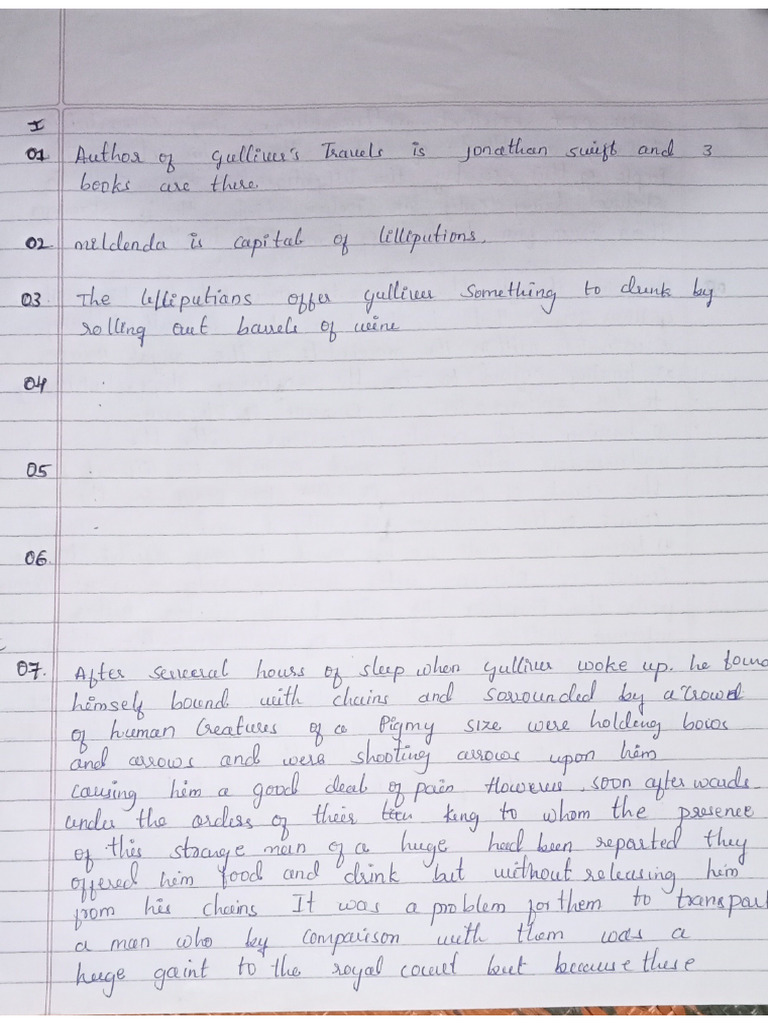 I
01 Author of Gulliver's Travels is Jonathan swift and 3
books are there.
02. mildenda is capital of lilliputions.
03. The lilliputians offer gulliver something to drink by
rolling out barrels of wine
04
05
06.
07. After senceral hours of sleep when gulliver woke up. he found
himself bound with chains and sorrounded by a crowd
of human Creatures of a Pigmy size were holding bows
and arrows and were shooting arrows upon him
causing him a good deal of pain However, soon after wards
under the orders of their king to whom the presence
of this strange man of a huge had been reported they
offered him food and drink but without releasing him
from his chains It was a problem for them to transport
a man who by comparison with them was a
huge gaint to the royal court but because these